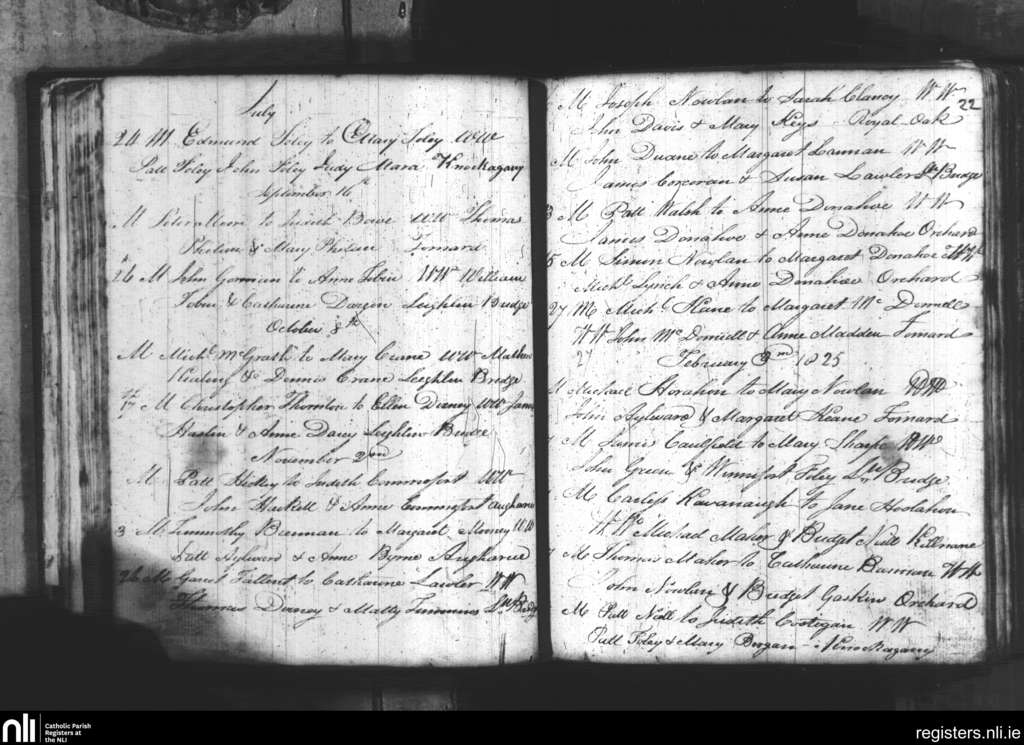 July
24 M Edmund Foley to Mary Foley WW
Patt Foley John Foley Judy Mara Knockagany
September 16th
M to Judith Bowe WW Thomas
Phelan & Mary Phelan Fornard
26 M John Gorman to Anne Tobin WW William
Tobin & Catharine Leighlin Bridge
October 8th
M Michl McGrath to Mary Crane WW Mathew
Keating & Dennis Crane Leighlin Bridge
17 M Christopher Thornton to Ellen Darcy WW James
& Anne Darcy Leighlin Bridge
November 2nd
M Patt Hickey to Judith Commefort WW
John Haskell & Anne Commefort Augharue
3 M Timmothy Brennan to Margaret Money WW
Patt Aylward & Anne Byrne Augharue
26 M Garret Tallent to Catharine Lawler WW
Thomas Darcy & Matty Timmins Ln Bridge
22
M Joseph Nowlan to Sarah Clancy WW
John Davis & Mary Keys - Royal-Oak
M John Duane to Margaret Lannan WW
James Corcoran & Susan Lawler Ln Bridge
3 M Patt Walsh to Anne Donahoe WW
James Donahoe & Anne Donahoe Orchard
5 M Simon Nowlan to Margaret Donahoe WW
Michl Lynch & Anne Donahoe Orchard
27 M Michl Kane to Margaret Mc Donnell
WW John Mc Donnell & Anne Madden Fornard
27 February 3rd 1825
M Michael Horahon to Mary Nowlan WW
John Aylward & Margaret Keane Fornard
M James Caulfield to Mary Sharpe WW
John Green & Winnifort Foley Ln Bridge
M Carless Kavanaugh to Jane Hoolahan
WW Michael Mahor & Bridget Neill Killinane
M Thomas Mahor to Catharine Bannan WW
John Nowlan & Bridget Gaskin Orchard
M Patt Neill to Judith Costigan WW
Patt Foley & Mary Bergan - Knockagany
nli
Catholic Parish
Registers at
the NLI
registers.nli.ie